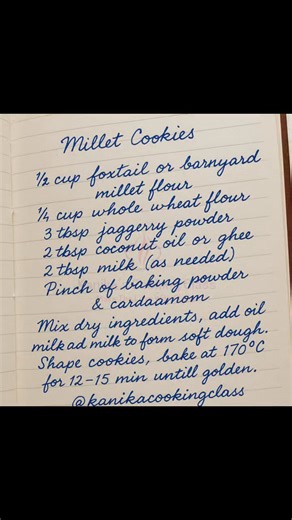 Millet Cookies
1/2 cup foxtail or barnyard
millet flour
1/4 cup whole wheat flour
3 tbsp jaggerry powder
2 tbsp coconut oil or ghee
2 tbsp milk (as needed)
Pinch of baking powder
& cardaamom
Mix dry ingredients, add oil
milk ad milk to form soft dough.
Shape cookies, bake at 170°C
for 12-15 min untill golden.
@kanikacookingclass